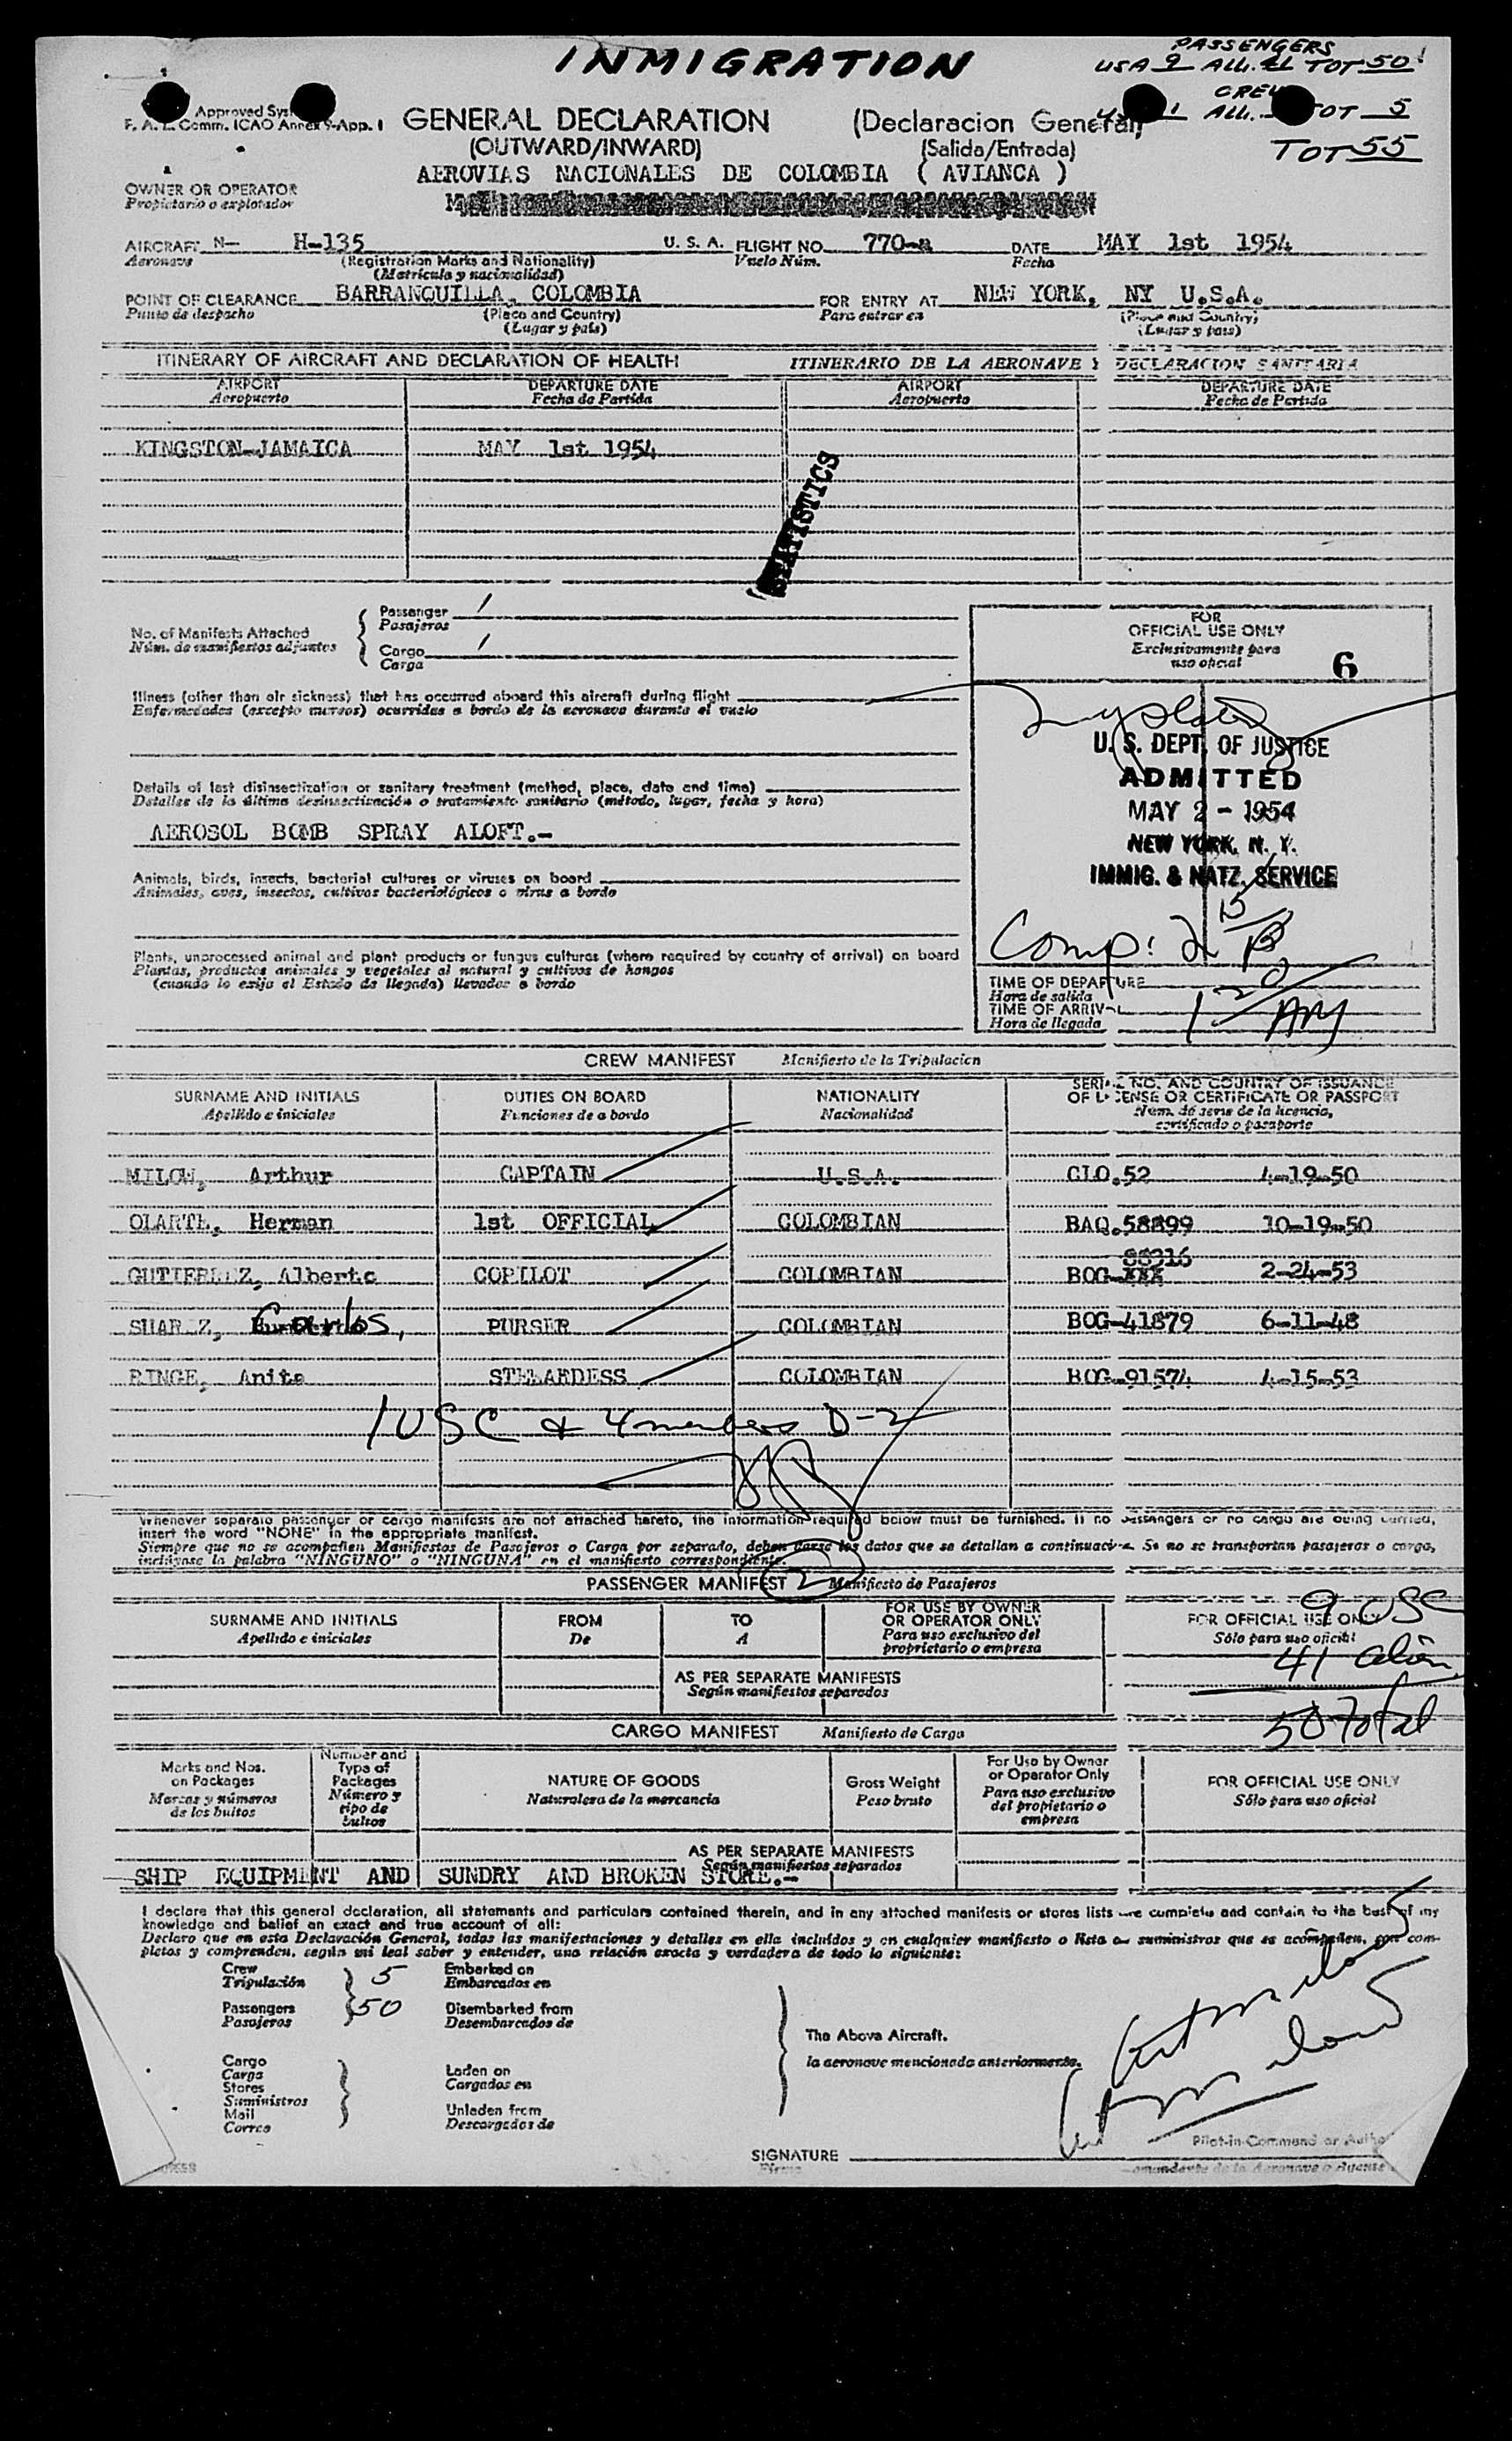 INMIGRATION
PASSENGERS
USA 9 ALL. 41 TOT 50
CREW
1 ALL. TOT 5
TOT 55
Approved Sys
F. A. L. Comm. ICAO Annex 9-App. 1
GENERAL DECLARATION (Declaracion General)
(OUTWARD/INWARD) (Salida/Entrada)
AEROVIAS NACIONALES DE COLOMBIA ( AVIANCA )
OWNER OR OPERATOR
Propietario o explotador
AIRCRAFT N- H-135 U. S. A. FLIGHT NO. 770-a DATE MAY 1st 1954
Aeronave (Registration Marks and Nationality) Vuelo Núm. Fecha
(Matrícula y nacionalidad)
POINT OF CLEARANCE BARRANQUILLA, COLOMBIA FOR ENTRY AT NEW YORK, NY U.S.A.
Punto de despacho (Place and Country) Para entrar en (Place and Country)
(Lugar y país) (Lugar y país)
ITINERARY OF AIRCRAFT AND DECLARATION OF HEALTH ITINERARIO DE LA AERONAVE Y DECLARACION SANITARIA
AIRPORT DEPARTURE DATE AIRPORT DEPARTURE DATE
Aeropuerto Fecha de Partida Aeropuerto Fecha de Partida
KINGSTON-JAMAICA MAY 1st 1954
STATISTICS
No. of Manifests Attached
Núm. de manifiestos adjuntos
Passenger /
Pasajeros
Cargo /
Carga
FOR
OFFICIAL USE ONLY
Exclusivamente para
uso oficial
6
Illness (other than air sickness) that has occurred aboard this aircraft during flight
Enfermedades (excepto mareos) ocurridas a bordo de la aeronave durante el vuelo
U. S. DEPT. OF JUSTICE
ADMITTED
MAY 2 - 1954
NEW YORK, N. Y.
IMMIG. & NATZ. SERVICE
Details of last disinsectization or sanitary treatment (method, place, date and time)
Detalles de la última desinsectización o tratamiento sanitario (método, lugar, fecha y hora)
AEROSOL BOMB SPRAY ALOFT.-
Animals, birds, insects, bacterial cultures or viruses on board
Animales, aves, insectos, cultivos bacteriológicos o virus a bordo
Comp: 2
Plants, unprocessed animal and plant products or fungus cultures (where required by country of arrival) on board
Plantas, productos animales y vegetales al natural y cultivos de hongos
(cuando lo exija el Estado de llegada) llevados a bordo
TIME OF DEPARTURE
Hora de salida
TIME OF ARRIV
Hora de llegada
1 20 AM
CREW MANIFEST Manifiesto de la Tripulacion
SURNAME AND INITIALS DUTIES ON BOARD NATIONALITY SERIAL NO. AND COUNTRY OF ISSUANCE
OF LICENSE OR CERTIFICATE OR PASSPORT
Apellido e iniciales Funciones de a bordo Nacionalidad Núm. de serie de la licencia,
certificado o pasaporte
MILOW, Arthur CAPTAIN U.S.A. CLO.52 4-19-50
OLARTE, Herman 1st OFFICIAL COLOMBIAN BAQ.58899 10-19-50
GUTIERREZ, Alberto COPILOT COLOMBIAN BOG-XXX 2-24-53
SUAREZ, Carlos, PURSER COLOMBIAN BOG-41879 6-11-48
RINGE, Anita STEWARDESS COLOMBIAN BOG-91574 4-15-53
1 USC & 4 members D-2
Whenever separate passenger or cargo manifests are not attached hereto, the information required below must be furnished. If no passengers or no cargo are being carried,
insert the word "NONE" in the appropriate manifest.
Siempre que no se acompañen Manifiestos de Pasajeros o Carga por separado, deben darse los datos que se detallan a continuación. Si no se transportan pasajeros o carga,
inclúyase la palabra "NINGUNO" o "NINGUNA" en el manifiesto correspondiente.
PASSENGER MANIFEST 2 Manifiesto de Pasajeros
SURNAME AND INITIALS FROM TO FOR USE BY OWNER
OR OPERATOR ONLY FOR OFFICIAL USE ONLY
Apellido e iniciales De A Para uso exclusivo del
propietario o empresa Sólo para uso oficial
9 USC
41 alien
50 total
AS PER SEPARATE MANIFESTS
Según manifiestos separados
CARGO MANIFEST Manifiesto de Carga
Marks and Nos.
on Packages
Marcas y números
de los bultos
Number and
Type of
Packages
Número y
tipo de
bultos
NATURE OF GOODS
Naturaleza de la mercancía
Gross Weight
Peso bruto
For Use by Owner
or Operator Only
Para uso exclusivo
del propietario o
empresa
FOR OFFICIAL USE ONLY
Sólo para uso oficial
AS PER SEPARATE MANIFESTS
Según manifiestos separados
SHIP EQUIPMENT AND SUNDRY AND BROKEN STORE.-
I declare that this general declaration, all statements and particulars contained therein, and in any attached manifests or stores lists are complete and contain to the best of my
knowledge and belief an exact and true account of all:
Declaro que en esta Declaración General, todas las manifestaciones y detalles en ella incluidos y en cualquier manifiesto o lista de suministros que se acompañen, son com-
pletos y comprenden, según mi leal saber y entender, una relación exacta y verdadera de todo lo siguiente:
Crew 5 Embarked on
Tripulación Embarcados en
Passengers 50 Disembarked from
Pasajeros Desembarcados de
The Above Aircraft.
la aeronave mencionada anteriormente.
Cargo
Carga
Stores
Suministros
Mail
Correo
Laden on
Cargados en
Unladen from
Descargados de
Art Milow
Art Milow
SIGNATURE
Firma
Pilot-in-Command or Autho